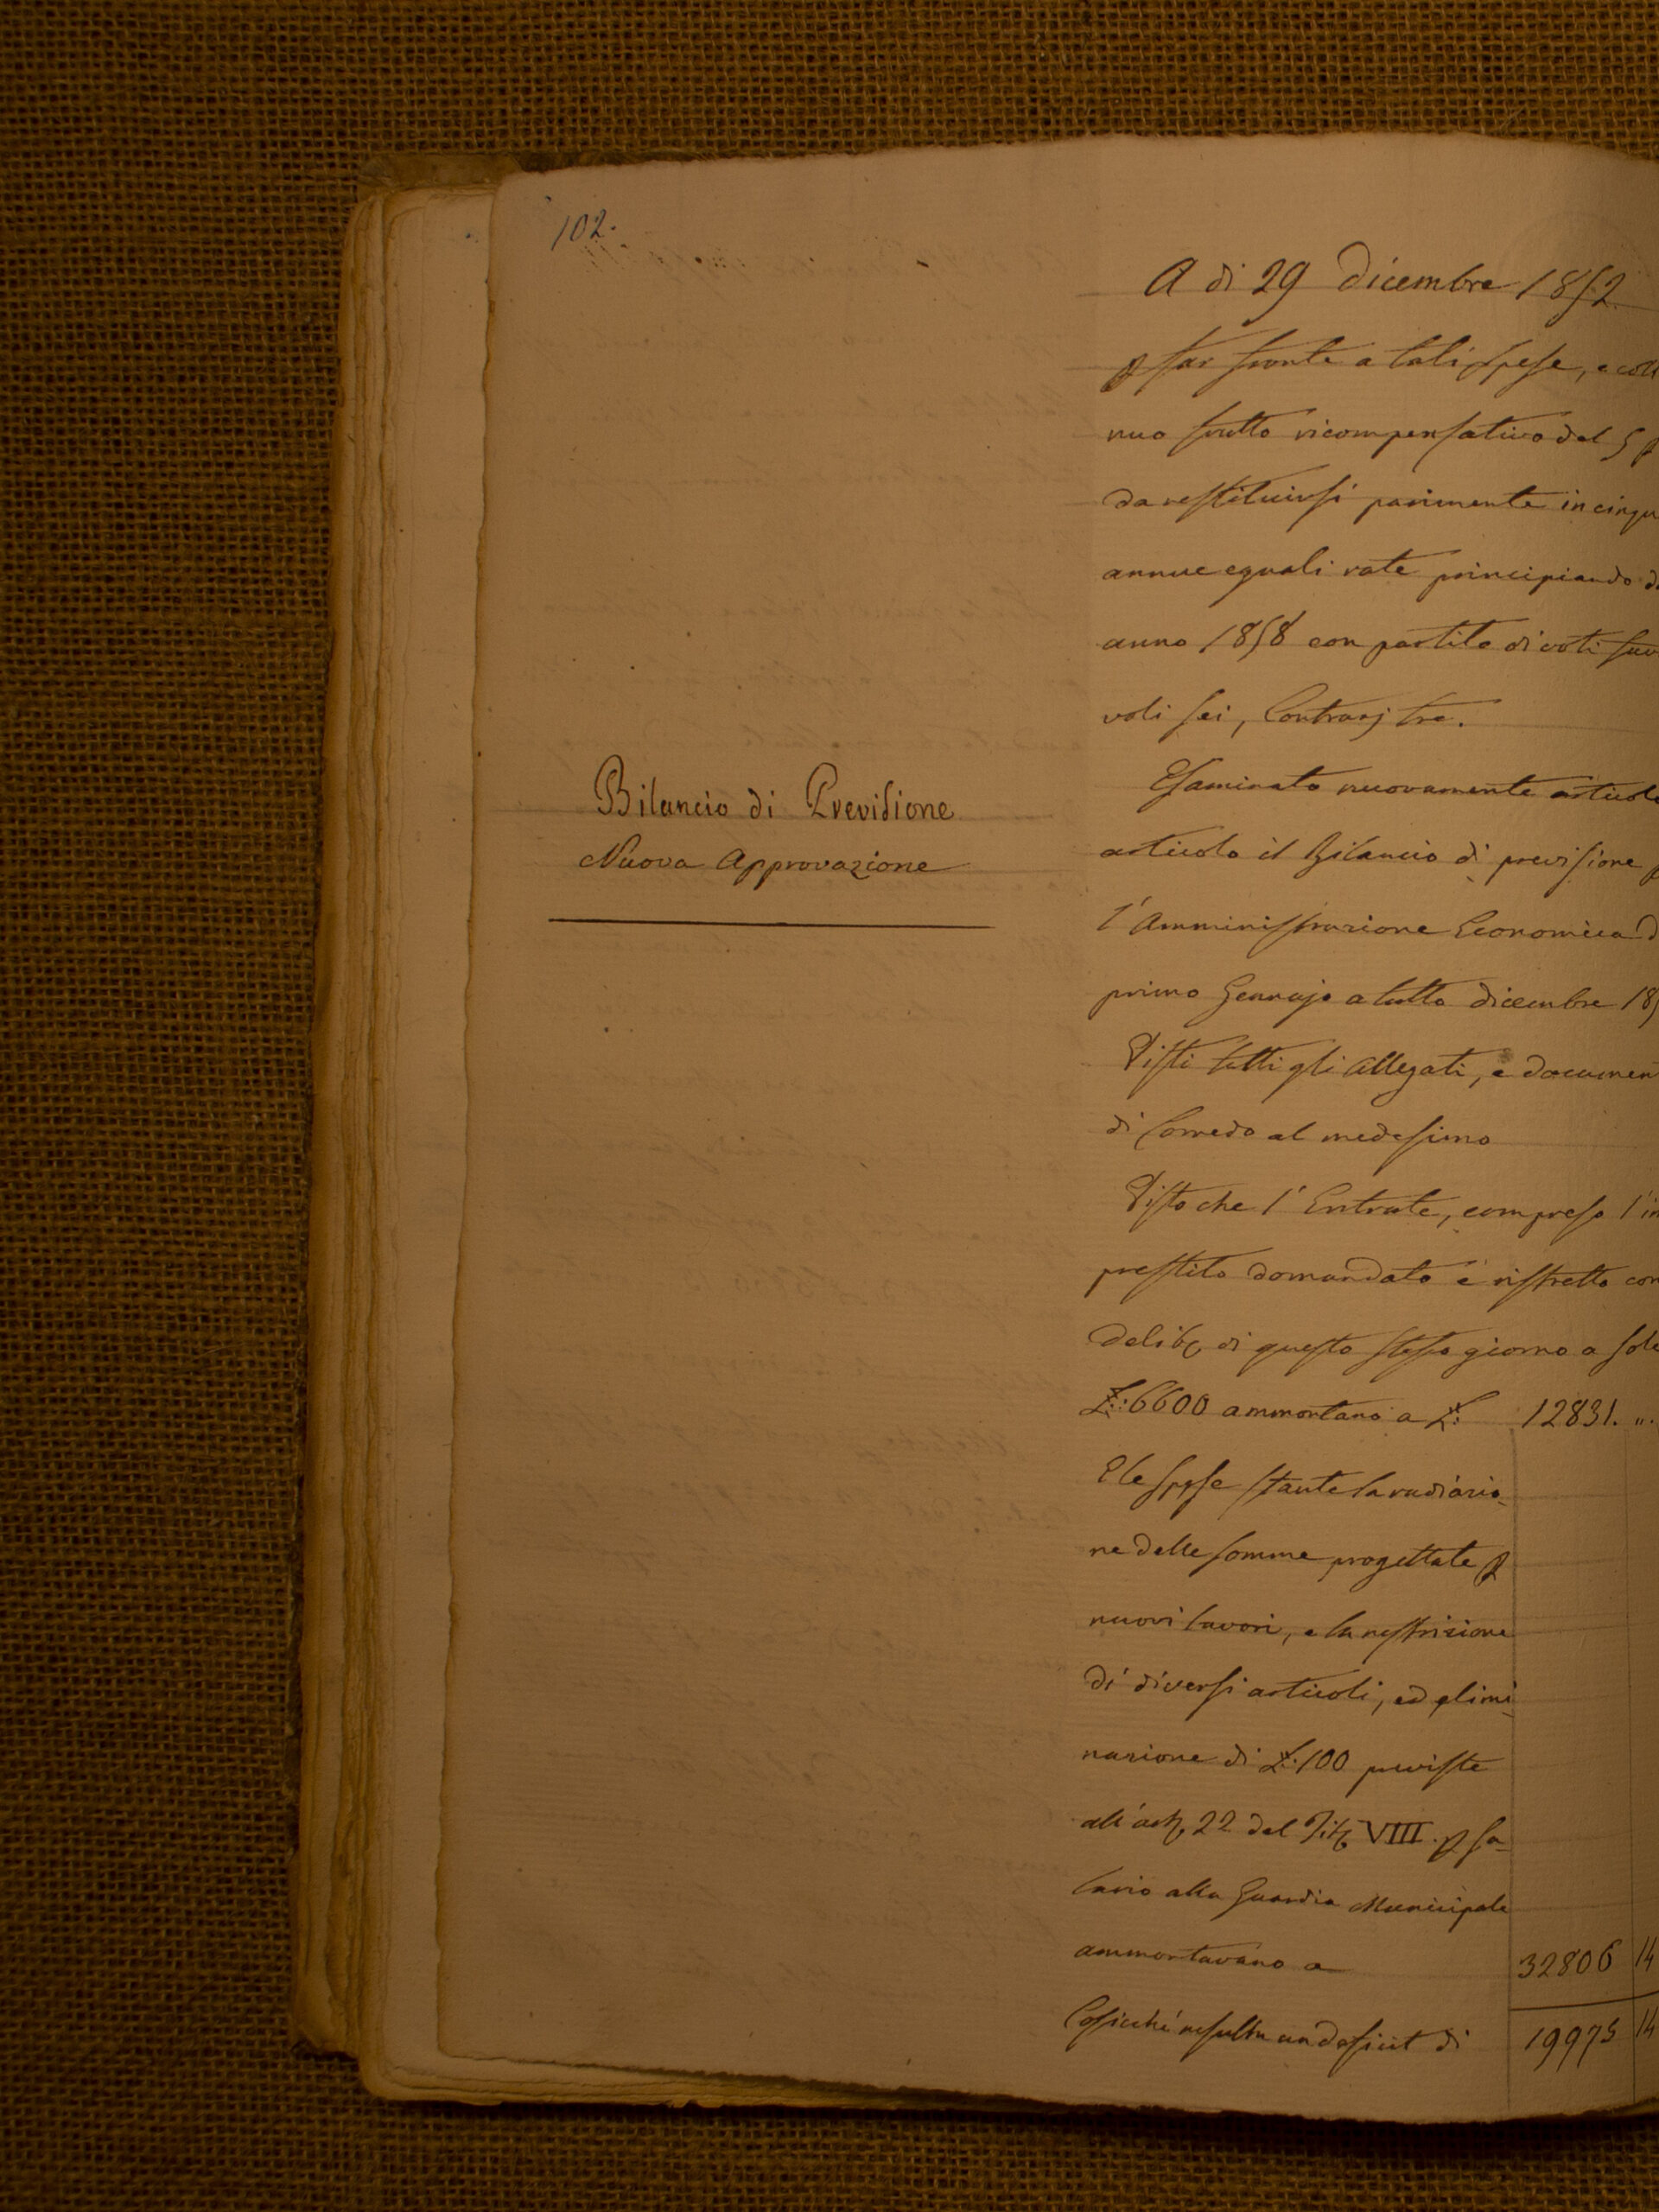 102.
A di 29 Dicembre 1852
p far fronte a tali spese, e coll
nuo frutto ricompensativo del 5 p
da restituirsi parimente in cinqu
annue eguali rate principiando d
anno 1858 con partito di voti fav
voli sei, Contrarj tre.
Bilancio di Previsione
Nuova Approvazione
Esaminato nuovamente articolo
articolo il Bilancio di previsione p
l'Amministrazione Economica d
primo Gennajo a tutto dicembre 185
Visti tutti gli Allegati, e documen
di Corredo al medesimo
Visto che l'Entrate, compreso l'im
prestito domandato e ristretto con
delib. di questo stesso giorno a sole
£: 6600 ammontano a £: 12831. „.
E le spese stante la radiazio-
ne delle somme progettate p
nuovi lavori, e la restrizione
di diversi articoli, ed elimi-
nazione di £: 100 previste
all'art. 22 del Tit. VIII. p sa-
lario alla Guardia Municipale
ammontavano a 32806 14
Cosicché resulta un deficit di 19975 14